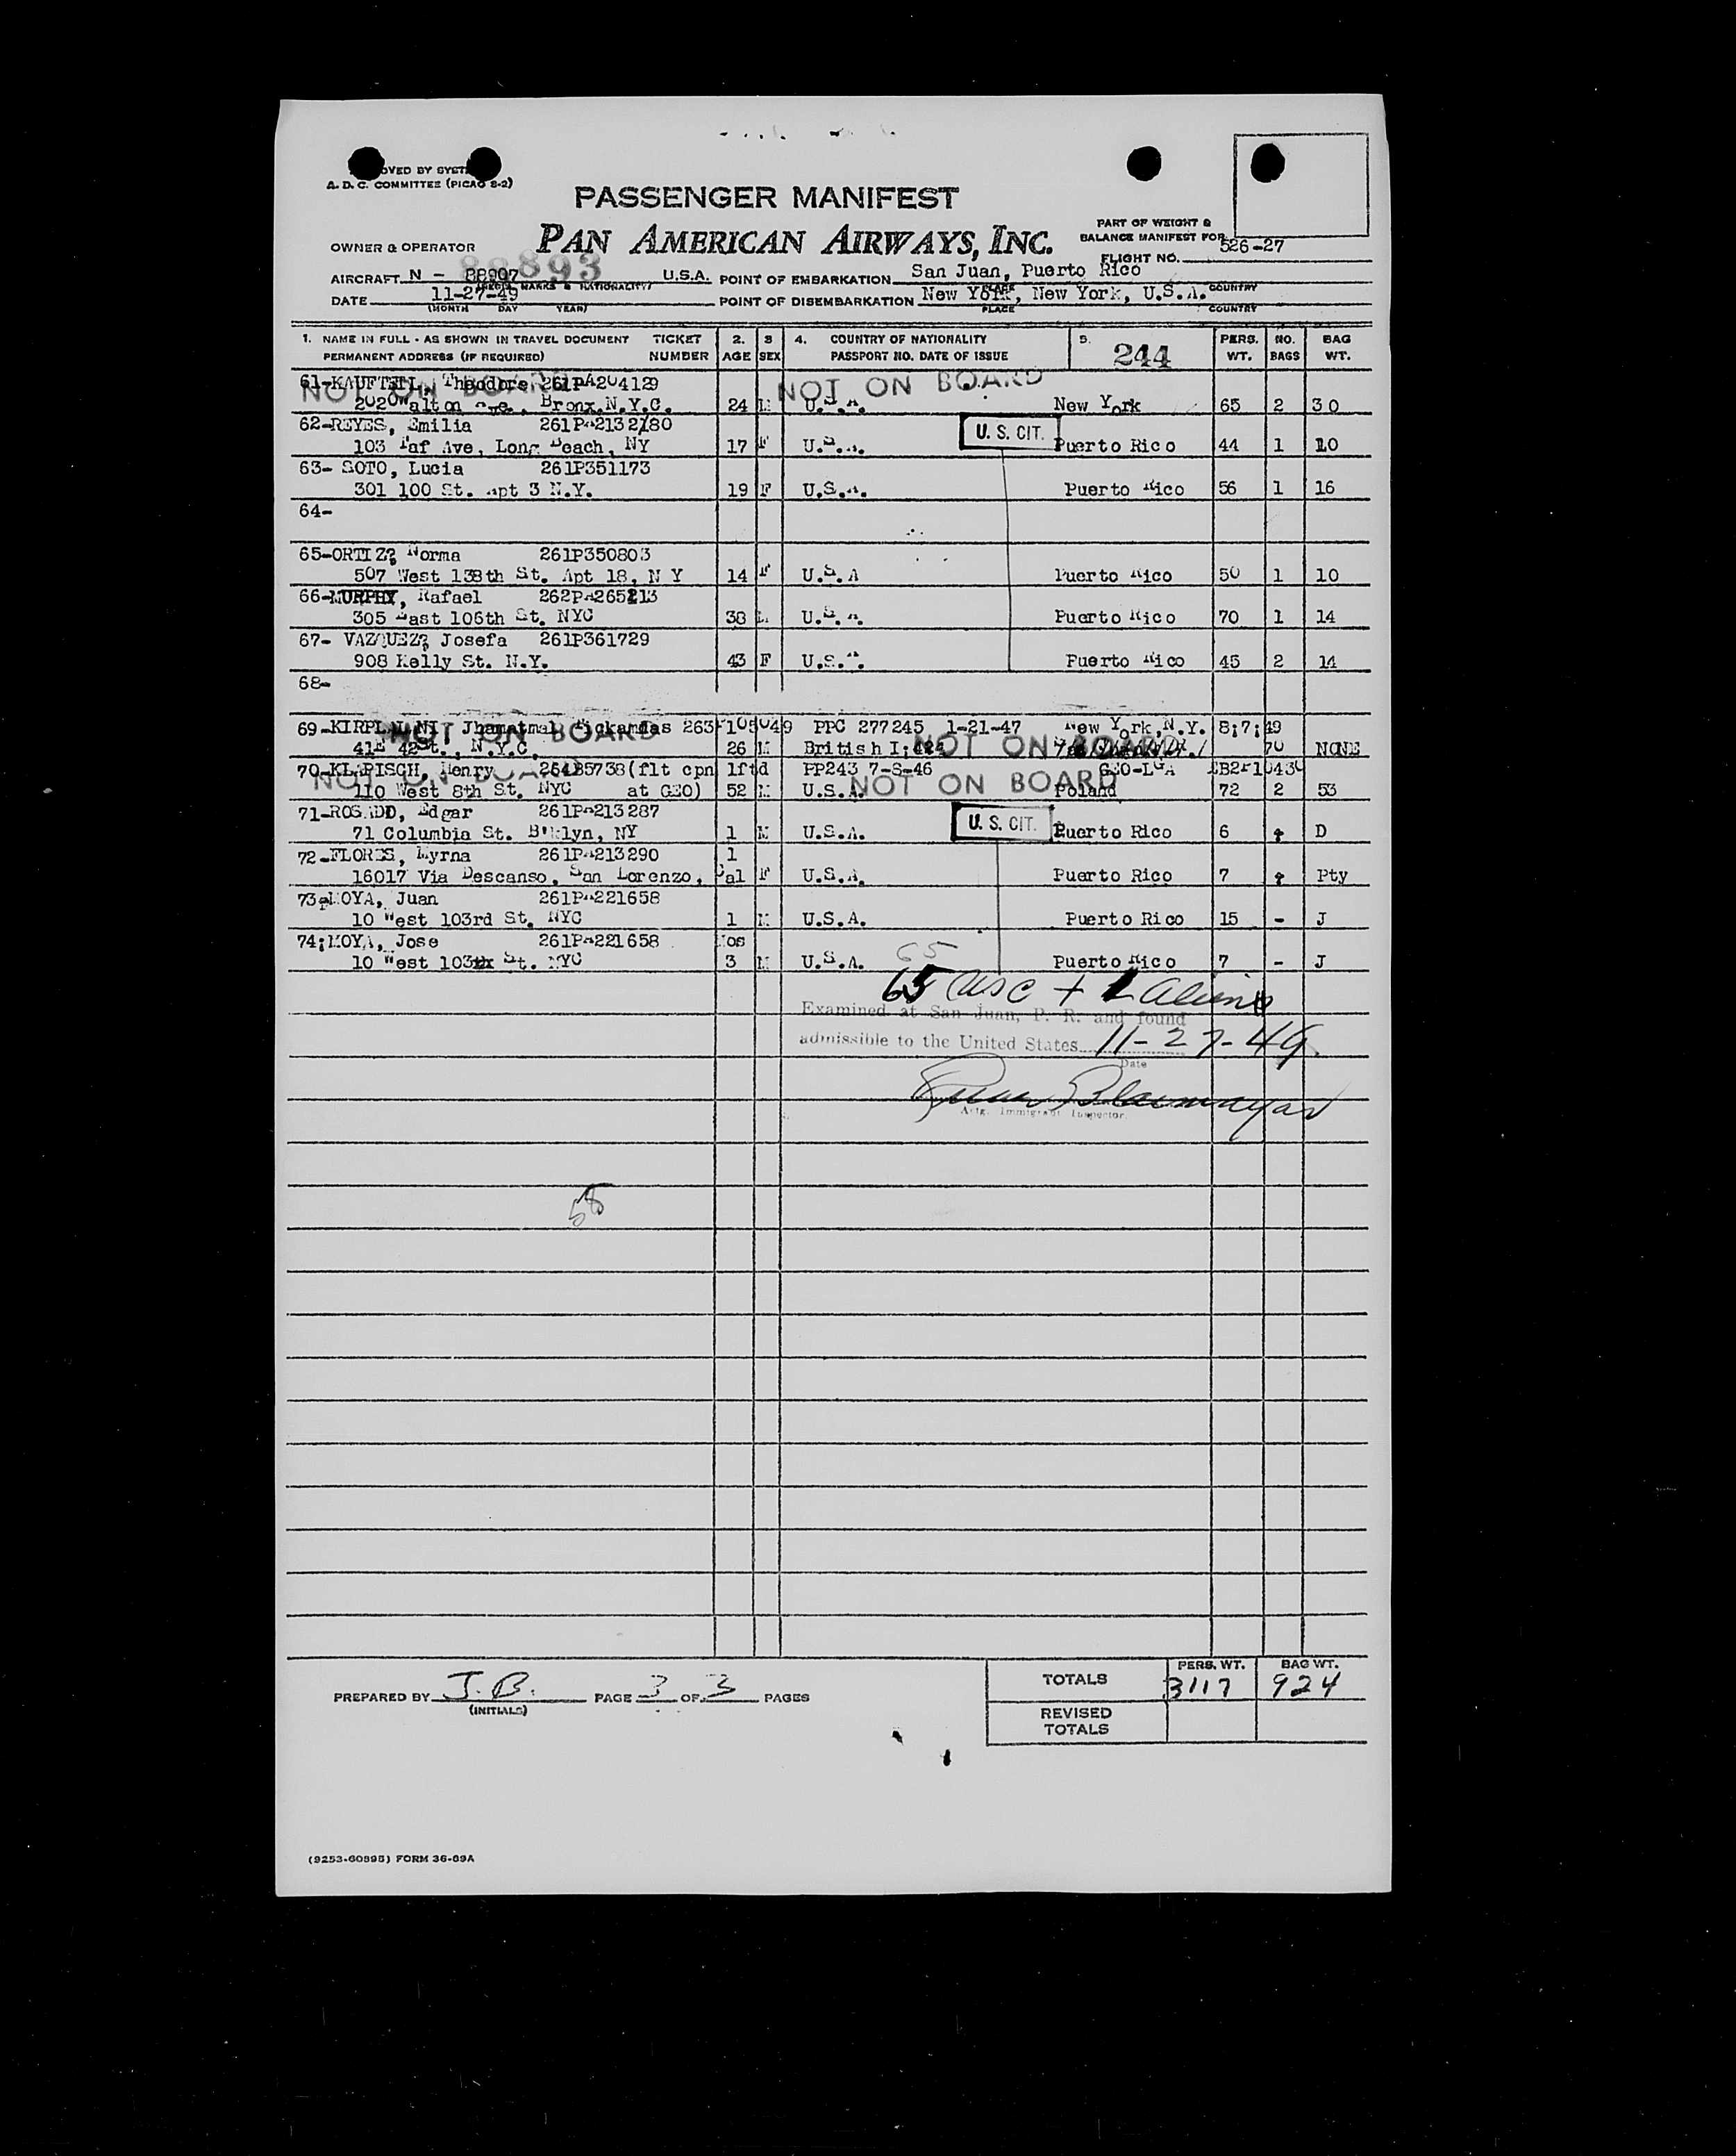 A. D. C. COMMITTEE (PICAO S-2)
PASSENGER MANIFEST
PAN AMERICAN AIRWAYS, INC.
OWNER & OPERATOR
PART OF WEIGHT &
BALANCE MANIFEST FOR
FLIGHT NO. 526-27
AIRCRAFT N - 88907 88893 U.S.A.
POINT OF EMBARKATION San Juan, Puerto Rico
DATE 11-27-49
(MONTH DAY YEAR)
POINT OF DISEMBARKATION New York, New York, U.S.A.
PLACE COUNTRY
1. NAME IN FULL - AS SHOWN IN TRAVEL DOCUMENT TICKET 2. 3 4. COUNTRY OF NATIONALITY 5. 244 PERS. NO. BAG
PERMANENT ADDRESS (IF REQUIRED) NUMBER AGE SEX PASSPORT NO. DATE OF ISSUE WT. BAGS WT.
NOT ON BOARD NOT ON BOARD
61- Theodore 261PA204129
2020 Walton Ave., Bronx, N.Y.C. 24 M U.S.A. New York 65 2 30
62-REYES, Emilia 261PA213280
103 Ave, Long Beach, NY 17 F U.S.A. U. S. CIT. Puerto Rico 44 1 10
63- SOTO, Lucia 261P351173
301 100 St. Apt 3 N.Y. 19 F U.S.A. Puerto Rico 56 1 16
64-
65-ORTIZ, Norma 261P350803
507 West 138th St. Apt 18, N Y 14 F U.S.A Puerto Rico 50 1 10
66-MURPHY, Rafael 262PA265213
305 East 106th St. NYC 38 M U.S.A. Puerto Rico 70 1 14
67- VAZQUEZ, Josefa 261P361729
908 Kelly St. N.Y. 43 F U.S.A. Puerto Rico 45 2 14
68-
69- 263-105049 PPC 277245 1-21-47 New York, N.Y. 8;7;49
NOT ON BOARD NOT ON BOARD
41E 42 St., N.Y.C. 26 M British I; 70 NONE
70-KLAPISCH, Henry 264B5738(flt cpn lftd PP243 7-8-46 GEO-LGA
NOT ON BOARD NOT ON BOARD
110 West 8th St. NYC at GEO) 52 M U.S.A. Poland 72 2 53
71-ROSADO, Edgar 261PA213287
71 Columbia St. B'klyn, NY 1 M U.S.A. U. S. CIT. Puerto Rico 6 D
72-FLORES, Myrna 261PA213290 1
16017 Via Descanso, San Lorenzo, Cal F U.S.A. Puerto Rico 7 Pty
73-MOYA, Juan 261PA221658
10 West 103rd St. NYC 1 M U.S.A. Puerto Rico 15 - J
74;MOYA, Jose 261PA221658 Mos
10 West 103 St. NYC 3 M U.S.A. Puerto Rico 7 - J
65
65 usc +
Examined at San Juan, P. R. and found
admissible to the United States 11-27-49
Date
Actg. Immigrant Inspector.
58
PREPARED BY J.B. PAGE 3 OF 3 PAGES
(INITIALS)
PERS. WT. BAG WT.
TOTALS 3117 924
REVISED
TOTALS
(9253-60895) FORM 36-69A